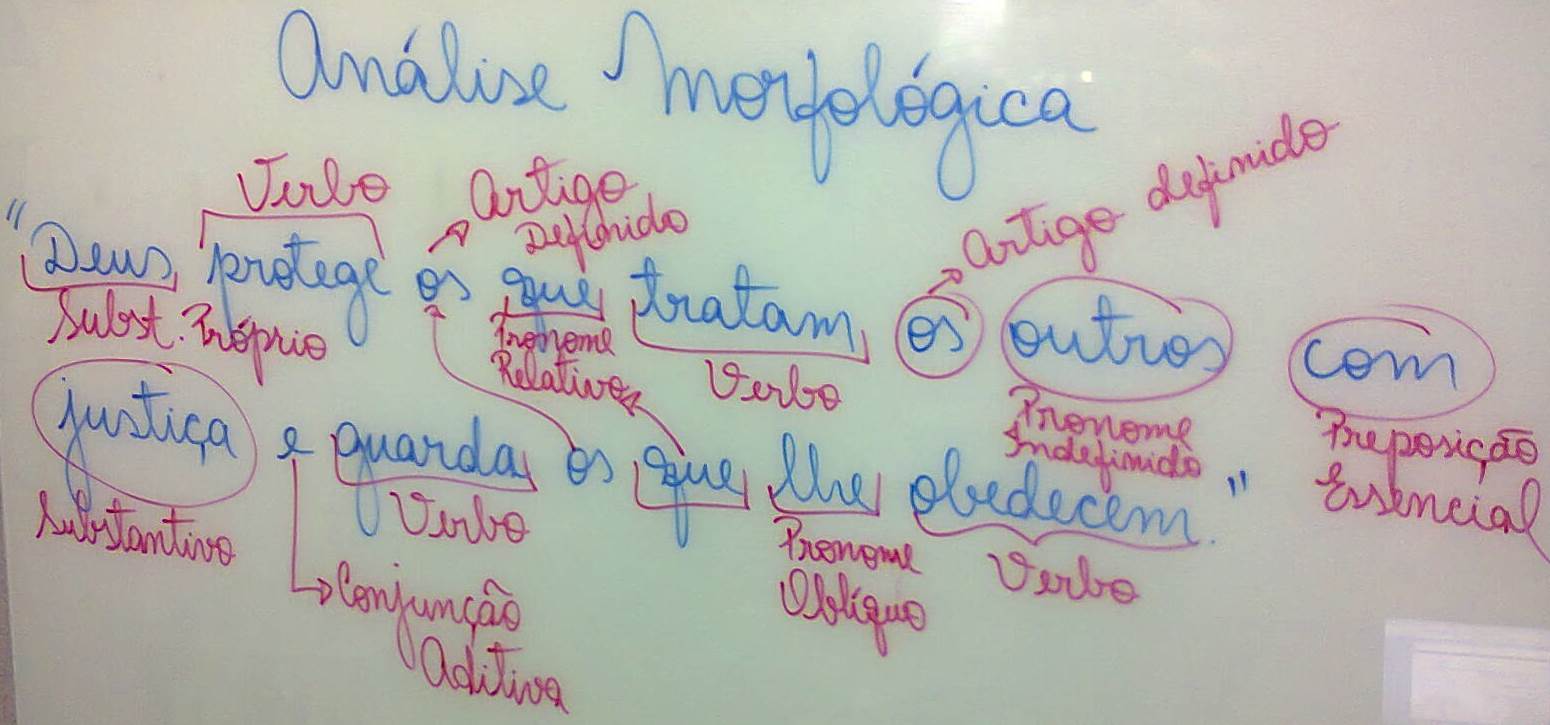 Análise Morfológica
Verbo
Artigo
Definido
artigo definido
"Deus protege os que tratam os outros com
Subst. Próprio
Pronome
Relativo
Verbo
Pronome
Indefinido
Preposição
Essencial
justiça e guarda os que lhe obedecem."
Substantivo
Verbo
Pronome
Oblíquo
Verbo
Conjunção
Aditiva